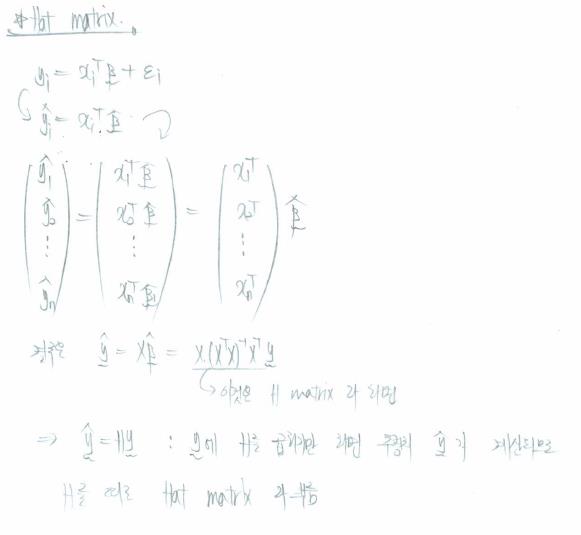 * Hat matrix.
yᵢ = xᵢᵀβ + εᵢ
ŷᵢ = xᵢᵀβ̂
(ŷ₁ ŷ₂ ⋮ ŷₙ) = (x₁ᵀβ̂ x₂ᵀβ̂ ⋮ xₙᵀβ̂) = (x₁ᵀ x₂ᵀ ⋮ xₙᵀ) β̂
결국은 ŷ = Xβ̂ = X(XᵀX)⁻¹Xᵀy
이것을 H matrix 라 하면
⇒ ŷ = Hy : y에 H를 곱하기만 하면 추정치 ŷ가 계산되므로
H를 따로 Hat matrix 라 부름